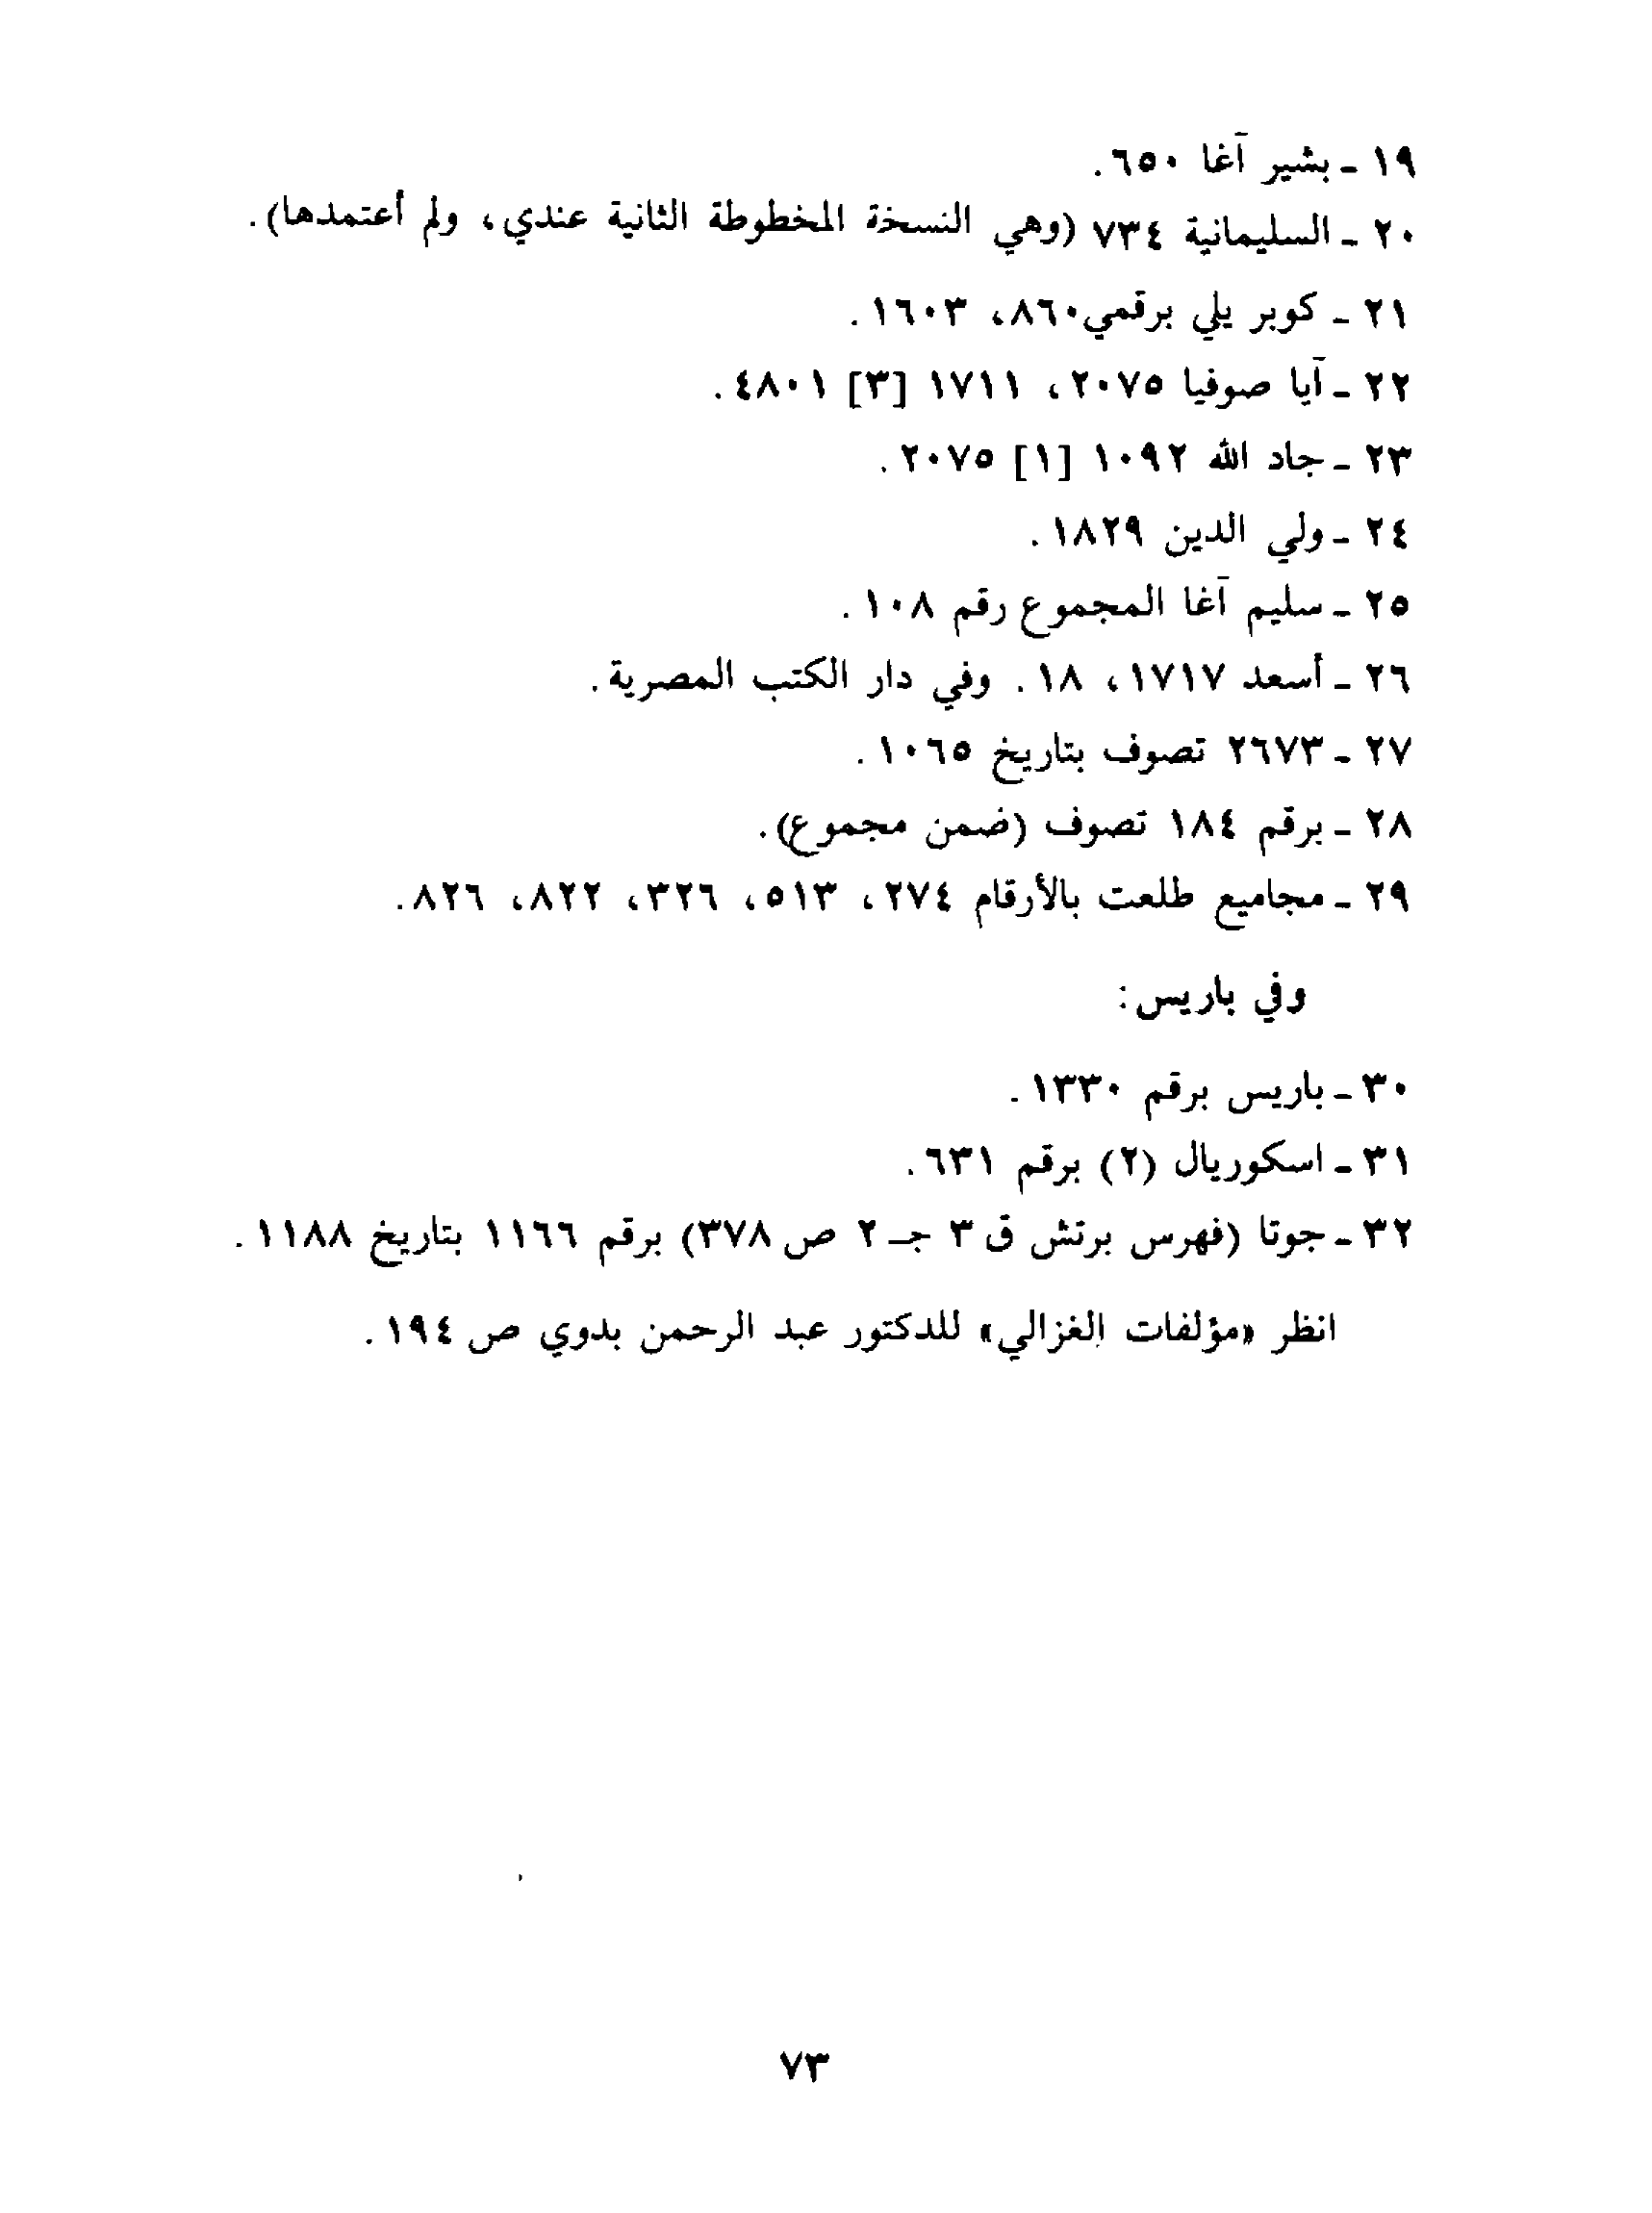 ١٩ - بشير آغا ٦٥٠.
٢٠ - السليمانية ٧٣٤ (وهي النسخة المخطوطة الثانية عندي، ولم أعتمدها).
٢١ - كوبر يلي برقمي ٨٦٠، ١٦٠٣.
٢٢ - آيا صوفيا ٢٠٧٥، ١٧١١ [٣] ٤٨٠١.
٢٣ - جاد الله ١٠٩٢ [١] ٢٠٧٥.
٢٤ - ولي الدين ١٨٢٩.
٢٥ - سليم آغا المجموع رقم ١٠٨.
٢٦ - أسعد ١٧١٧، ١٨. وفي دار الكتب المصرية.
٢٧ - ٢٦٧٣ تصوف بتاريخ ١٠٦٥.
٢٨ - برقم ١٨٤ تصوف (ضمن مجموع).
٢٩ - مجاميع طلعت بالأرقام ٢٧٤، ٥١٣، ٣٢٦، ٨٢٢، ٨٢٦.
وفي باريس:
٣٠ - باريس برقم ١٣٣٠.
٣١ - اسكوريال (٢) برقم ٦٣١.
٣٢ - جوتا (فهرس برتش ق ٣ جـ ٢ ص ٣٧٨) برقم ١١٦٦ بتاريخ ١١٨٨.
انظر «مؤلفات الغزالي» للدكتور عبد الرحمن بدوي ص ١٩٤.
٧٣